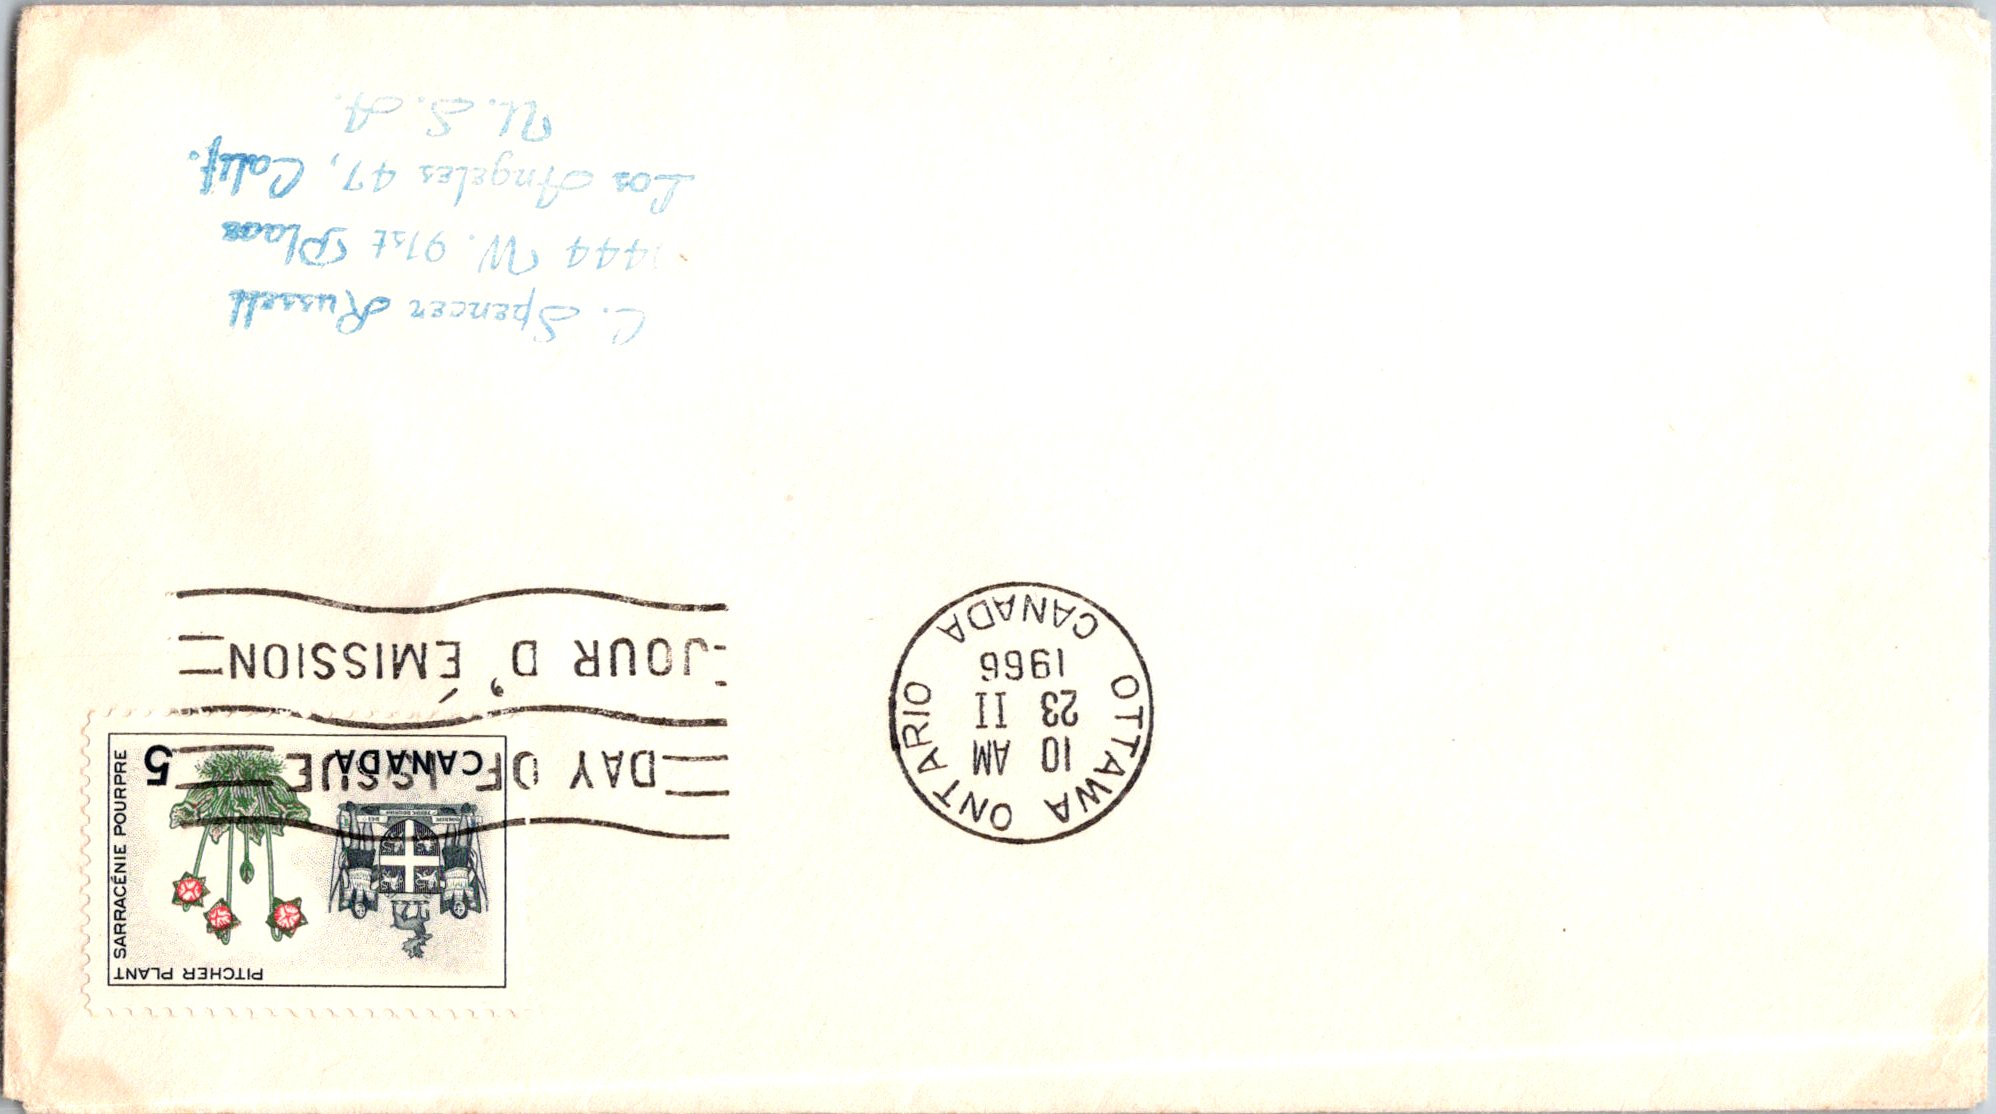 OTTAWA ONTARIO
10 AM
23 II
1966
CANADA
DAY OF ISSUE
JOUR D'ÉMISSION
PITCHER PLANT
SARRACÉNIE POURPRE
CANADA
5
C. Spencer Russell
1444 W. 91st Place
Los Angeles 47, Calif.
U. S. A.